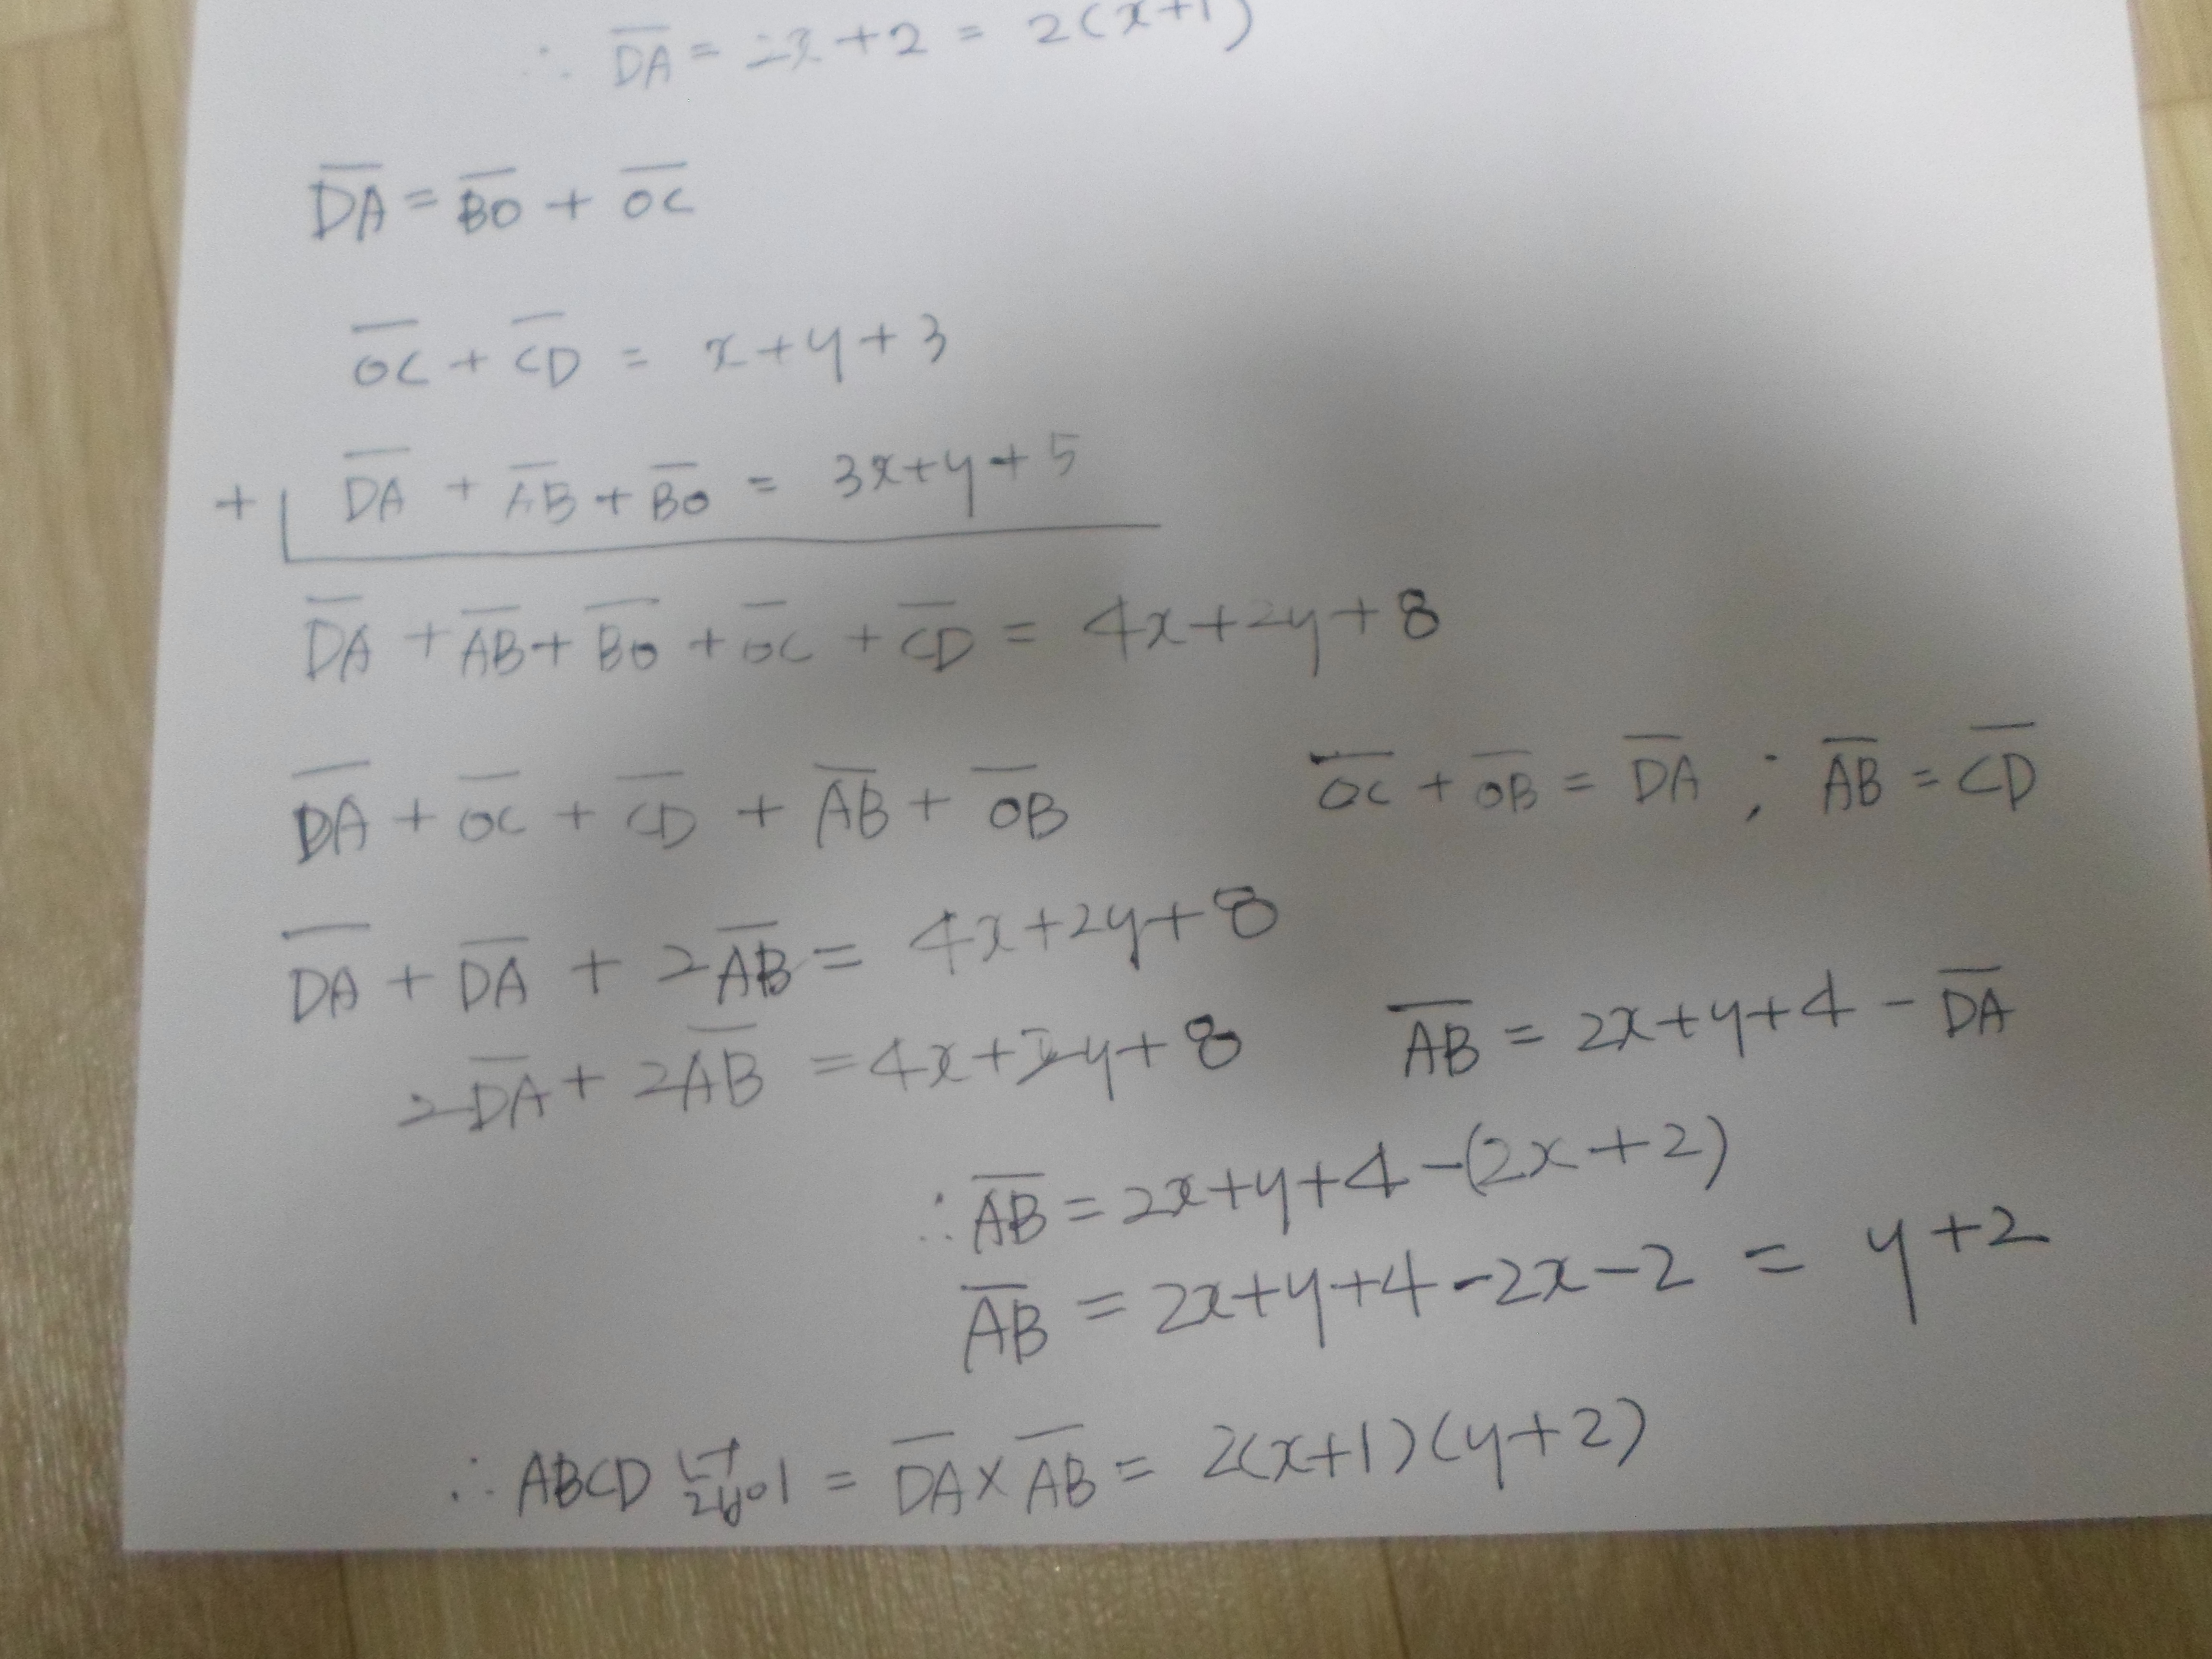 ∴ D̅A̅ = 2x+2 = 2(x+1)
D̅A̅ = B̅O̅ + O̅C̅
O̅C̅ + C̅D̅ = x+y+3
+ D̅A̅ + A̅B̅ + B̅O̅ = 3x+y+5
D̅A̅ + A̅B̅ + B̅O̅ + O̅C̅ + C̅D̅ = 4x+2y+8
D̅A̅ + O̅C̅ + C̅D̅ + A̅B̅ + O̅B̅ O̅C̅ + O̅B̅ = D̅A̅ ; A̅B̅ = C̅D̅
D̅A̅ + D̅A̅ + 2A̅B̅ = 4x+2y+8
2D̅A̅ + 2A̅B̅ = 4x+2y+8 A̅B̅ = 2x+y+4-D̅A̅
∴ A̅B̅ = 2x+y+4-(2x+2)
A̅B̅ = 2x+y+4-2x-2 = y+2
∴ ABCD 넓이 = D̅A̅ × A̅B̅ = 2(x+1)(y+2)